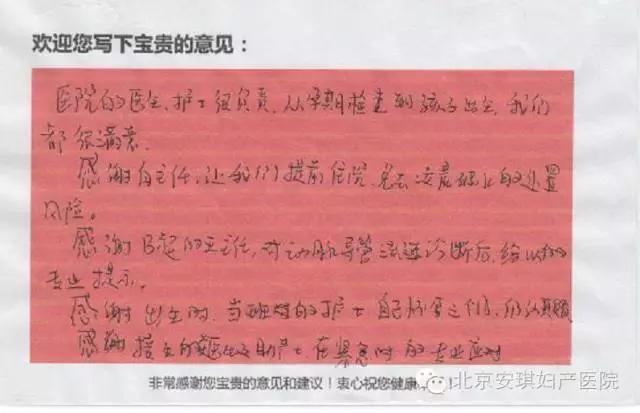 欢迎您写下宝贵的意见：
医院的医生、护士很负责，从孕期检查到孩子出生，我们
都很满意。
感谢 主任，让我们提前住院，免去凌晨 的处置
风险。
感谢B超的王主任，对动脉导管 诊断后，给以 的
专业提示。
感谢出生时，当班 的护士 们的认真
感谢接生的 医生及助产士，在紧急时的专业应对
非常感谢您宝贵的意见和建议！衷心祝您健康
北京安琪妇产医院